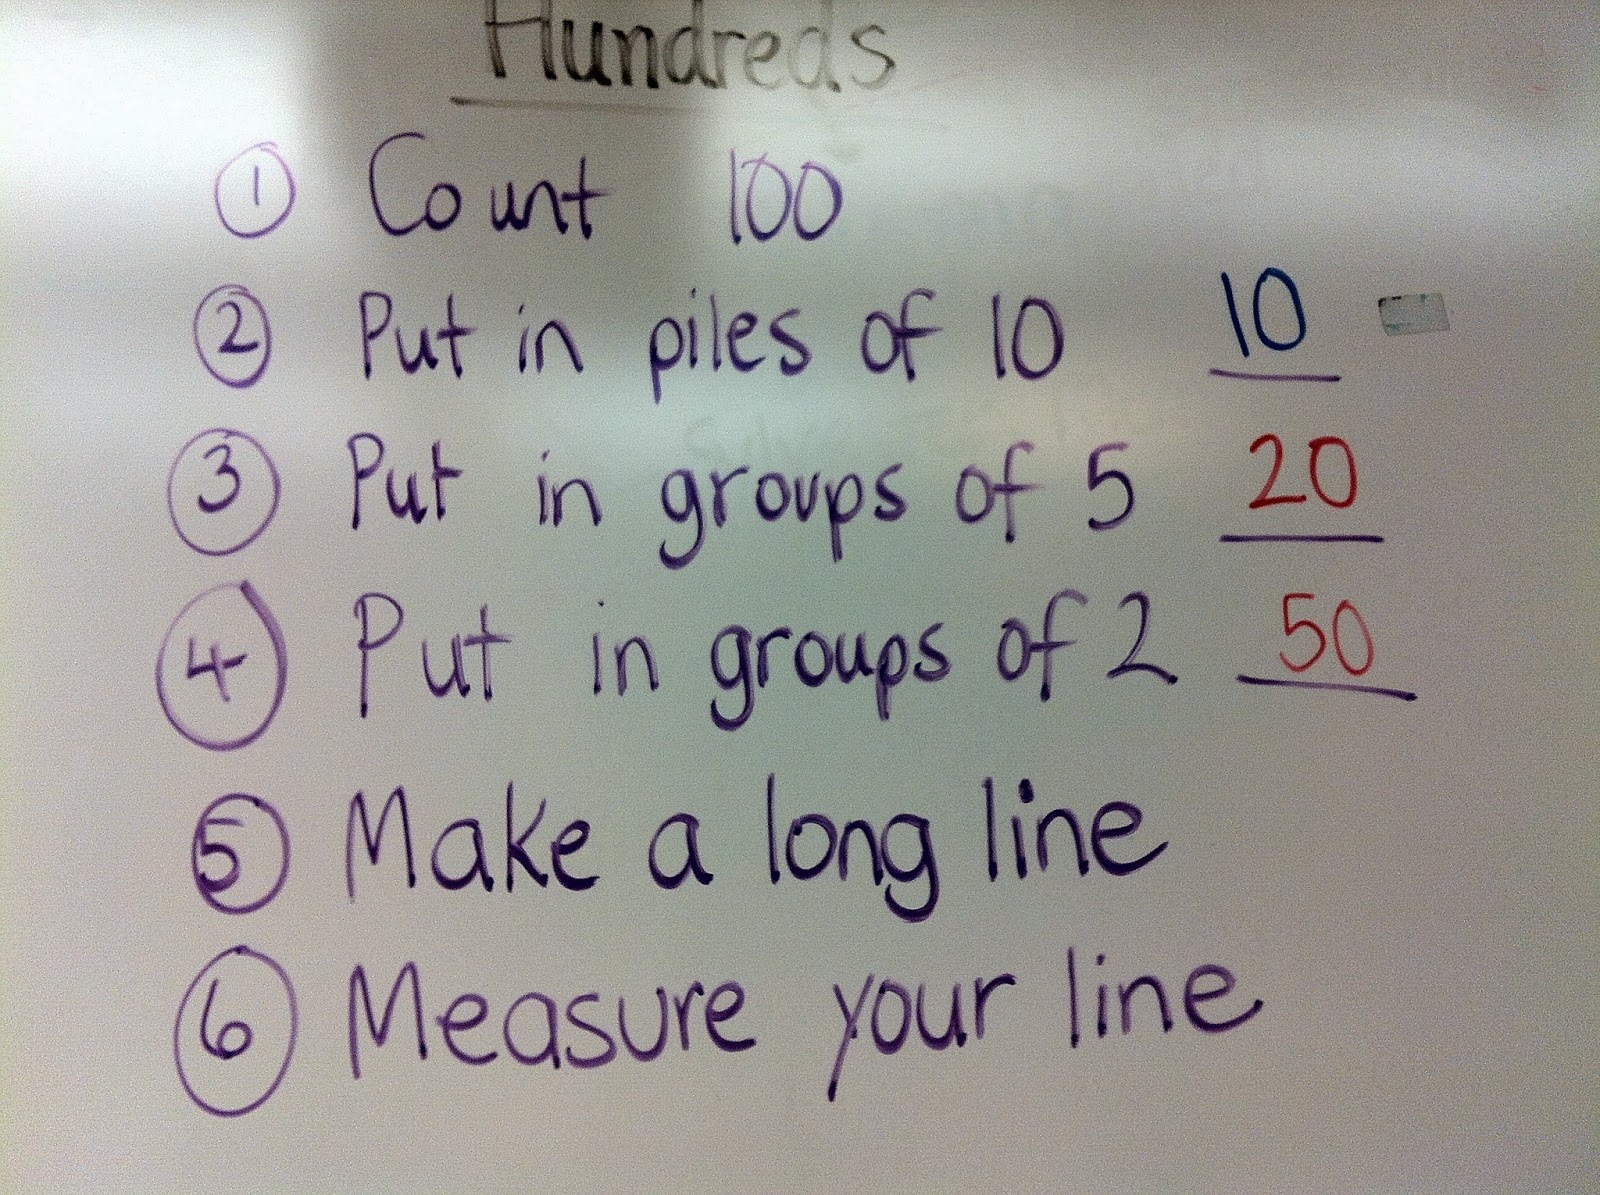 Hundreds
1 Count 100
2 Put in piles of 10 10
3 Put in groups of 5 20
4 Put in groups of 2 50
5 Make a long line
6 Measure your line